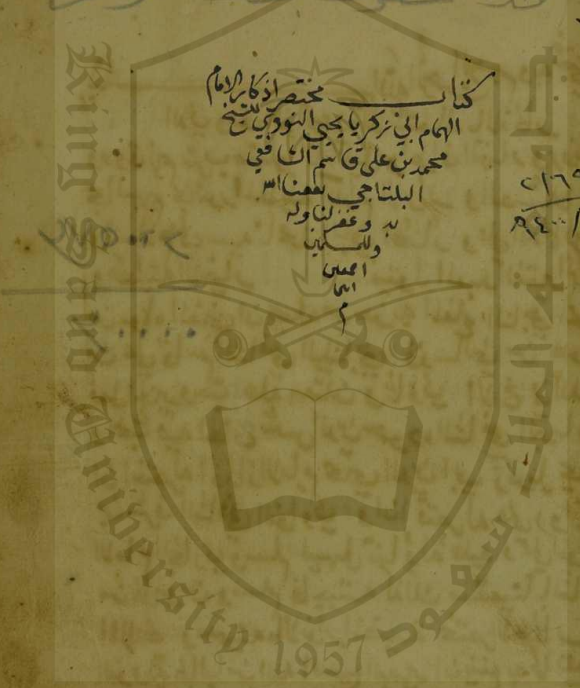 كتاب مختصر اذكار الامام
الهمام ابي زكريا يحيى النووي للشيخ
محمد بن علي قاسم الشافعي
البلتاجي نفعنا الله
به وغفر لنا وله
وللمسلمين
اجمعين
امين
م
٢١٦
King Saud University
1957
جامعة الملك سعود